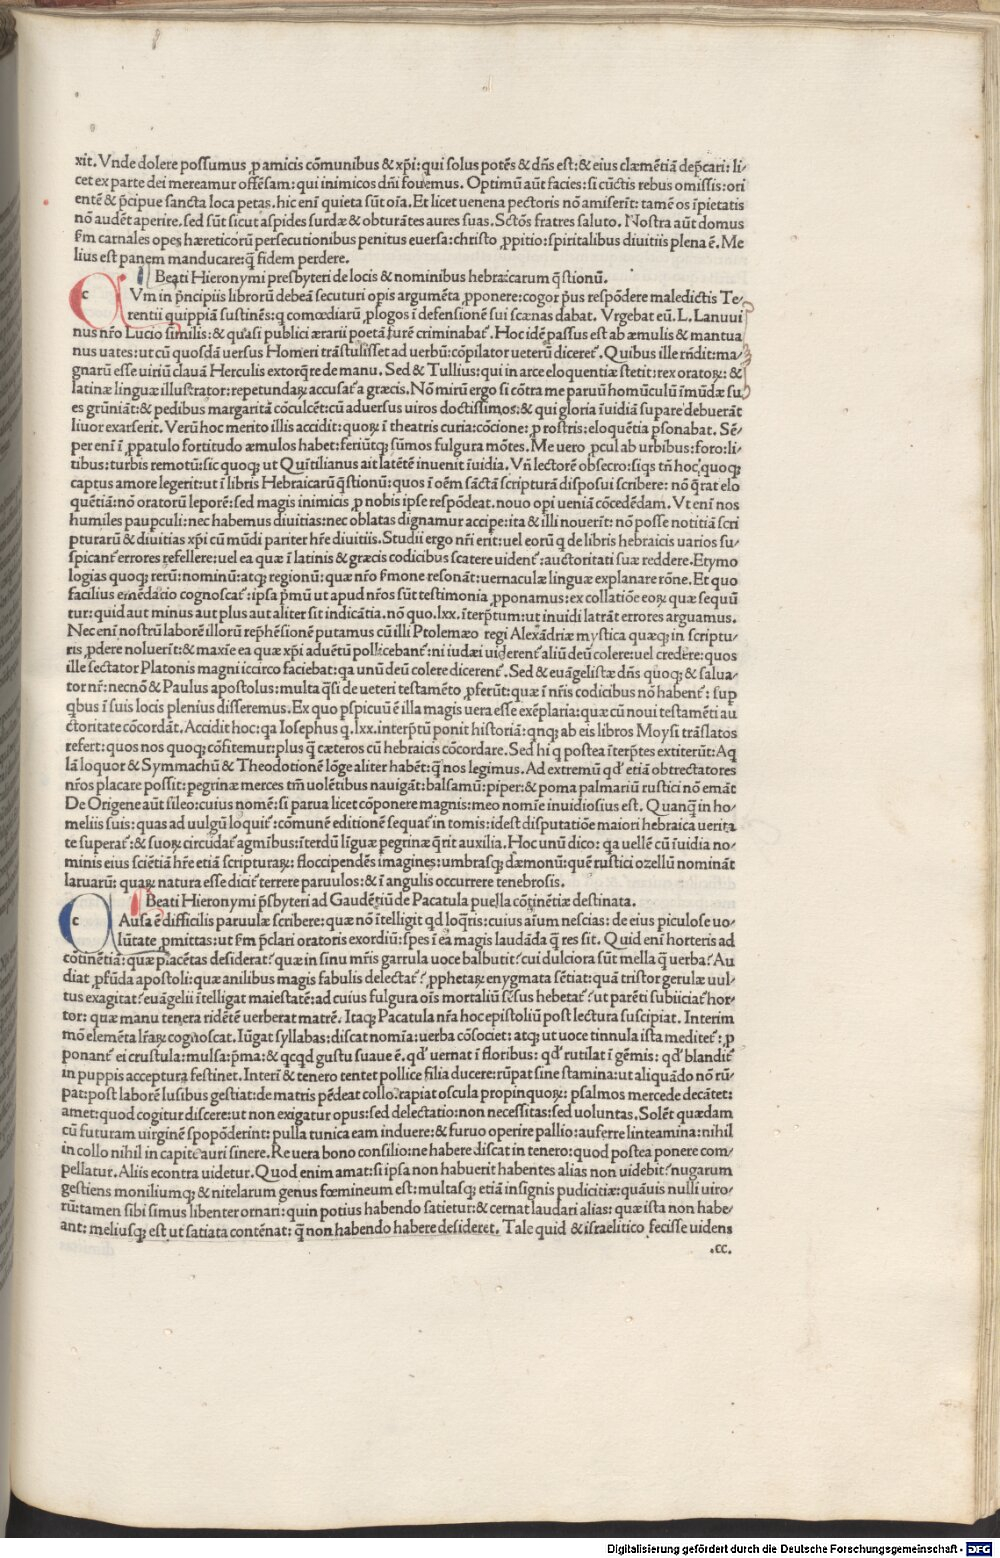 xit. Vnde dolere possumus ꝓ amicis cõmunibus & xp̄i: qui solus potẽs & dñs est: & eius clæmẽtiã dep̄cari: li/
cet ex parte dei mereamur offẽsam: qui inimicos dñi fouemus. Optimũ aũt facies: si cũctis rebus omissis: ori
entẽ & p̄cipue sancta loca petas. hic enĩ quieta sũt oĩa. Et licet uenena pectoris nõ amiserĩt: tamẽ os ĩpietatis
nõ audẽt aperire. sed sũt sicut aspides surdæ & obturãtes aures suas. Sctõs fratres saluto. Nostra aũt domus
ẜm carnales opes hæreticorũ persecutionibus penitus euersa: christo ꝓpitio: spiritalibus diuitiis plena ẽ. Me
lius est panem manducare: q̃ fidem perdere.
Beati Hieronymi presbyteri de locis & nominibus hebraicarum q̃stionũ.
c Vm in p̃ncipiis librorũ debeã secuturi opis argumẽta ꝓponere: cogor p̃us respõdere maledictis Te/
rentii quippiã sustinẽs: q comœdiarũ ꝓlogos ĩ defensionẽ sui scænas dabat. Vrgebat eũ. L. Lanuui
nus nr̃o Lucio similis: & quasi publici ærarii poetã furẽ criminabat᷑. Hoc idẽ passus est ab æmulis & mantua
nus uates: ut cũ quosdã uersus Homeri trãstulisset ad uerbũ: cõpilator ueterũ diceret᷑. Quibus ille rñdit: ma/
gnarũ esse uiriũ clauã Herculis extorq̃re de manu. Sed & Tullius: qui in arce eloquentiæ stetit: rex oratoꝝ: &
latinæ linguæ illustrator: repetundaꝝ accusat᷑ a græcis. Nõ mirũ ergo si cõtra me paruũ homũculũ ĩmũdæ su/
es grũniãt: & pedibus margaritã cõculcẽt: cũ aduersus uiros doctissimos: & qui gloria ĩuidiã supare debuerãt
liuor exarserit. Verũ hoc merito illis accidit: quoꝝ ĩ theatris curia: cõcione: ꝓ rostris: eloquẽtia psonabat. Sẽ/
per enĩ ĩ ꝓpatulo fortitudo æmulos habet: feriũtq; sũmos fulgura mõtes. Me uero ꝓcul ab urbibus: foro: li/
tibus: turbis remotũ: sic quoq; ut Quĩtilianus ait latẽtẽ inuenit ĩuidia. Vñ lectorẽ obsecro: siqs tñ hoc quoq;
captus amore legerit: ut ĩ libris Hebraicarũ q̃stionũ: quos ĩ oẽm sãctã scripturã disposui scribere: nõ q̃rat elo
quẽtiã: nõ oratorũ leporẽ: sed magis inimicis ꝓ nobis ipse respõdeat. nouo opi ueniã cõcedẽdam. Vt enĩ nos
humiles paupculi: nec habemus diuitias: nec oblatas dignamur accipe: ita & illi nouerĩt: nõ posse notitiã scri
pturarũ & diuitias xp̄i cũ mũdi pariter hr̃e diuitiis. Studii ergo nr̃i erit: uel eorũ q de libris hebraicis uarios su/
spicant᷑ errores refellere: uel ea quæ ĩ latinis & græcis codicibus scatere uident᷑: auctoritati suæ reddere. Etymo
logias quoq; rerũ: nominũ: atq; regionũ: quæ nr̃o ẜmone resonãt: uernaculæ linguæ explanare rõne. Et quo
facilius emẽdacio cognoscat᷑: ipsa p̃mũ ut apud nr̃os sũt testimonia ꝓponamus: ex collatiõe eoꝝ quæ sequũ
tur: quid aut minus aut plus aut aliter sit indicãtia. nõ quo. lxx. ĩterp̃tum: ut inuidi latrãt errores arguamus.
Nec enĩ nostrũ laborẽ illorũ rep̃hẽsionẽ putamus cũ illi Ptolemæo regi Alexãdriæ mystica quæq; in scriptu/
ris ꝓdere noluerĩt: & maxĩe ea quæ xp̄i aduẽtũ pollicebant᷑: ni iudæi uiderent᷑ aliũ deũ colere: uel credere: quos
ille sectator Platonis magni iccirco faciebat: qa unũ deũ colere dicerent᷑. Sed & euãgelistæ dñs quoq; & salua/
tor nr̃: necnõ & Paulus apostolus: multa q̃si de ueteri testamẽto ꝓferũt: quæ ĩ nr̃is codicibus nõ habent᷑: sup
qbus ĩ suis locis plenius disseremus. Ex quo pspicuũ ẽ illa magis uera esse exẽplaria: quæ cũ noui testamẽti au
ctoritate cõcordãt. Accidit hoc: qa Iosephus q. lxx. interp̃tũ ponit historiã: qnq; ab eis libros Moysi trãslatos
refert: quos nos quoq; cõfitemur: plus q̃ cæteros cũ hebraicis cõcordare. Sed hi q postea ĩterp̃tes extiterũt: Aq
lã loquor & Symmachũ & Theodotionẽ lõge aliter habẽt: q̃ nos legimus. Ad extremũ qd᷑ etiã obtrectatores
nr̃os placare possit: pegrinæ merces tm̃ uolẽtibus nauigãt: balsamũ: piper: & poma palmariũ rustici nõ emãt
De Origene aũt sileo: cuius nomẽ: si parua licet cõponere magnis: meo nomĩe inuidiosius est. Quanq̃ in ho/
meliis suis: quas ad uulgũ loquit᷑: cõmunẽ editionẽ sequat᷑ in tomis: idest disputatiõe maiori hebraica uerita
te superat᷑: & suoꝝ circũdat᷑ agmĩbus: ĩterdũ lĩguæ pegrinæ q̃rit auxilia. Hoc unũ dico: qa uellẽ cũ ĩuidia no/
minis eius sciẽtiã hr̃e etiã scripturaꝝ: floccipendẽs imagines: umbrasq; dæmonũ: quẽ rustici ozellũ nominãt
laruarũ: quaꝝ natura esse dicit᷑ terrere paruulos: & ĩ angulis occurrere tenebrosis.
Beati Hieronymi p̃sbyteri ad Gaudẽtiũ de Pacatula puella cõtinẽtiæ destinata.
c Ausa ẽ difficilis paruulæ scribere: quæ nõ ĩtelligit qd loq̃ris: cuius aĩum nescias: de eius piculose uo/
lũtate ꝓmittas: ut ẜm p̃clari oratoris exordiũ: spes ĩ ea magis laudãda q̃ res sit. Quid enĩ horteris ad
cõtinẽtiã: quæ placẽtas desiderat? quæ in sinu mr̃is garrula uoce balbutit? cui dulciora sũt mella q̃ uerba? Au
diat ꝓfũda apostoli: quæ anilibus magis fabulis delectat᷑? ꝓphetaꝝ enygmata sẽtiat: quã tristor gerulæ uul/
tus exagitat? euãgelii ĩtelligat maiestatẽ: ad cuius fulgura oĩs mortaliũ sẽsus hebetat᷑? ut parẽti subiiciat᷑ hor/
tor: quæ manu tenera ridẽtẽ uerberat matrẽ. Itaq; Pacatula nr̃a hoc epistoliũ post lectura suscipiat. Interim
mõ elemẽta lr̃aꝝ cognoscat. Iũgat syllabas: discat nomĩa: uerba cõsociet: atq; ut uoce tinnula ista meditet᷑: ꝓ
ponant᷑ ei crustula: mulsa: p̃ma: & qcqd gustu suaue ẽ. qd᷑ uernat ĩ floribus: qd᷑ rutilat ĩ gẽmis: qd᷑ blandit᷑
in puppis acceptura festinet. Interĩ & tenero tentet pollice filia ducere: rũpat sæpe stamina: ut aliquãdo nõ rũ/
pat: post laborẽ lusibus gestiat: de matris pẽdeat collo: rapiat oscula propinquoꝝ: psalmos mercede decãtet:
amet: quod cogitur discere: ut non exigatur opus: sed delectatio: non necessitas: sed uoluntas. Solẽt quædam
cũ futuram uirginẽ spopõderint: pulla tunica eam induere: & furuo operire pallio: auferre linteamina: nihil
in collo nihil in capite auri sinere. Re uera bono consilio: ne habere discat in tenero: quod postea ponere com/
pellatur. Aliis econtra uidetur. Quod enim amat: si ipsa non habuerit habentes alias non uidebit? nugarum
gestiens moniliumq; & nitelarum genus fœmineum est: multasq; etiã insignis pudicitiæ: quãuis nulli uiro/
rũ: tamen sibi simus libenter ornari: quin potius habendo satietur: & cernat laudari alias: quæ ista non habe/
ant: meliusq; est ut satiata contẽnat: q̃ non habendo habere desideret. Tale quid & israelitico fecisse uidens
.cc.
Digitalisierung gefördert durch die Deutsche Forschungsgemeinschaft - DFG